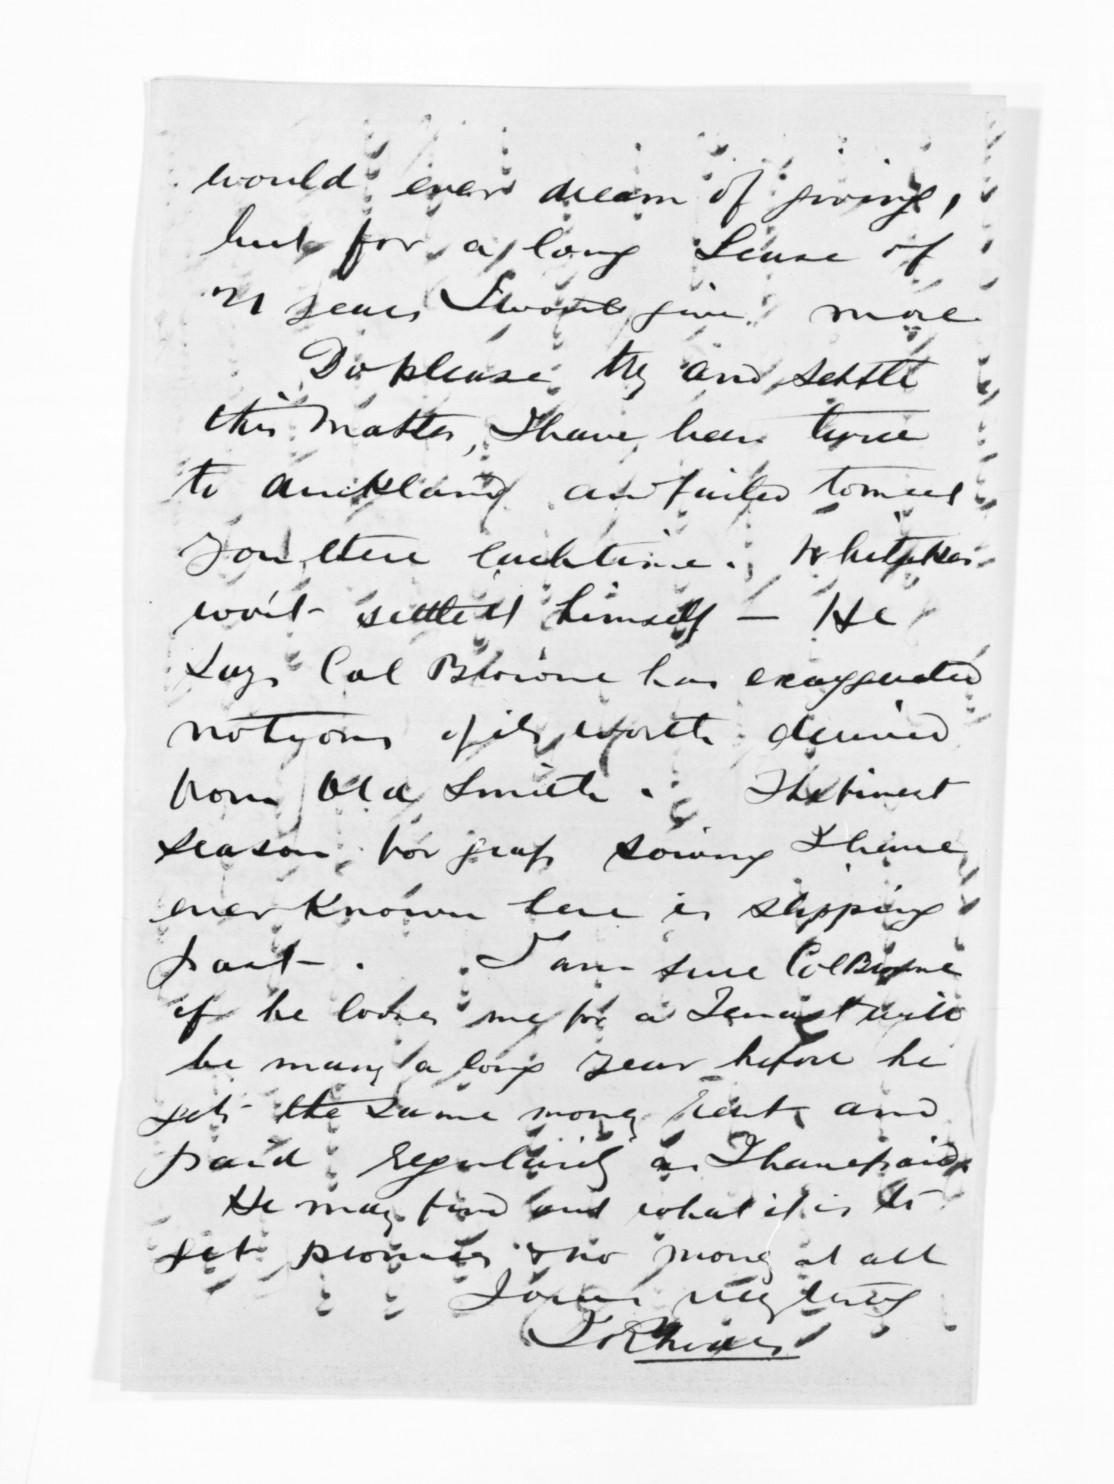 would ever dream of giving,
but for a long Lease of
21 years I would give more
Do please try and settle
this matter, I have been twice
to Auckland and failed to meet
you there each time. Whitaker
won't settle it himself — He
says Col Browne has exaggerated
notyons of its worth derived
from Old Smith. The finest
season for grass sowing I have
ever known here is slipping
past. I am sure Col Browne
if he looses me for a Tenant will
be many a long year before he
gets the same money rent and
paid regularily as I have paid.
He may find out what it is to
get promises & no money at all
Yours very truly
J Rhodes